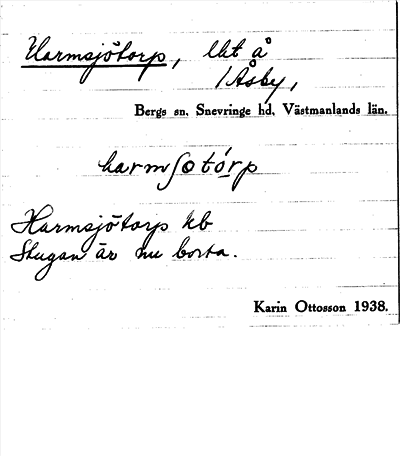 Harmsjötorp, lht å
/Åsby,
Bergs sn, Snevringe hd, Västmanlands län.
harmʃɵtórp
Harmsjötorp kb
Stugan är nu borta.
Karin Ottosson 1938.